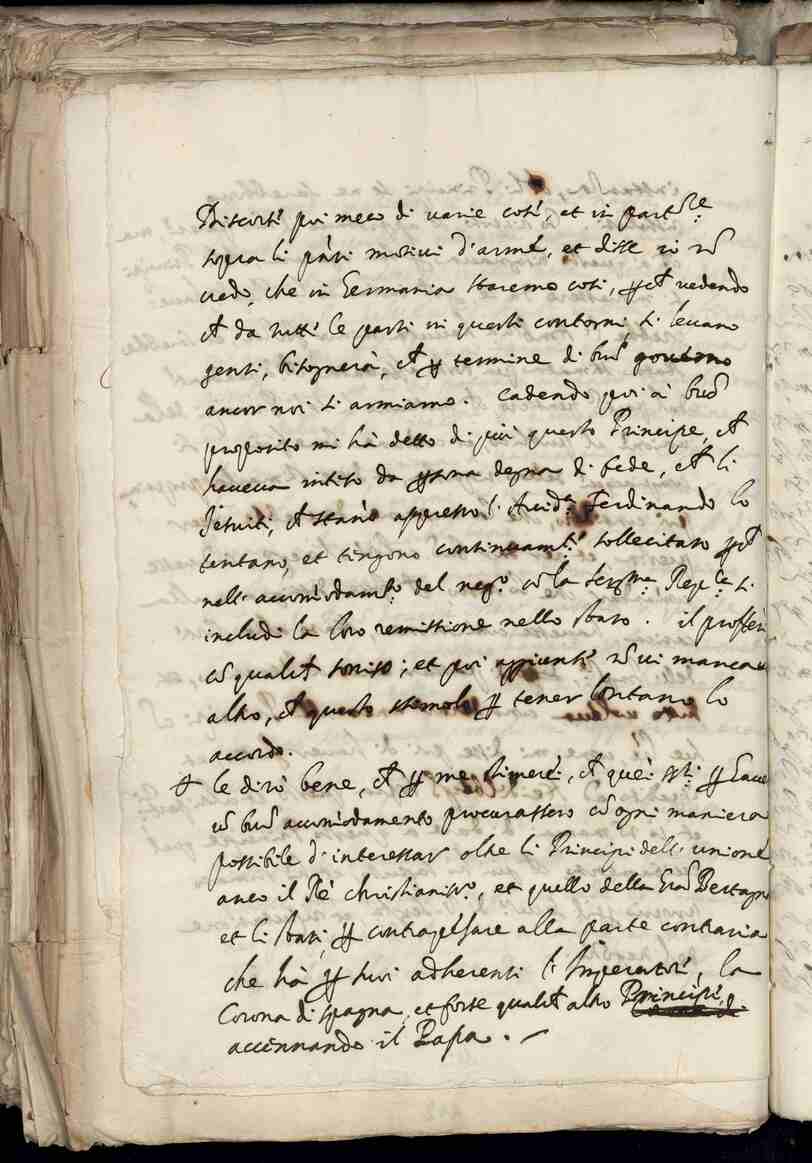 Discorse poi meco di varie cose, et in part.re
sopra li pñti motivi d'arme, et disse io nõ
credo, che in Germania staremo cosi, p̱ch vedendo
ch da tutte le parti in questi contorni si levano
genti, bisognerà, ch p̱ termine di buõ governo
ancor noi si armiamo. Cadendo poi à buõ
proposito mi hà detto di più questo Principe, ch
haveva inteso da p̱sona degna di fede, ch li
Jesuiti, ch stano appresso l'Arcid.a Ferdinando lo
tentano, et tengono continuam.te sollecitato p̱ch
nell'accomodam.to del neg.o cõ la Ser.ma Rep.ca si
includi la loro remissione nello stato. il profferì
cõ qualch sorriso; et poi aggiunse nõ vi manca
altro, ch questo stemolo p̱ tener lontano lo
accordo.
Le dirò bene, ch p̱ me stimerei, ch quei ss.ri p̱ haver
ũ buõ accomodamento procurassero cõ ogni maniera
possibile d'interessar oltre li Principi dell'unione
anco il Rè christianiss.o, et quello della Grã Bertagna
et li stati, p̱ contrapesare alla parte contraria
che hà p̱ suoi adherenti l'Imperatore, la
Corona di spagna, et forse qualch altro Principe,
accennando il Papa.